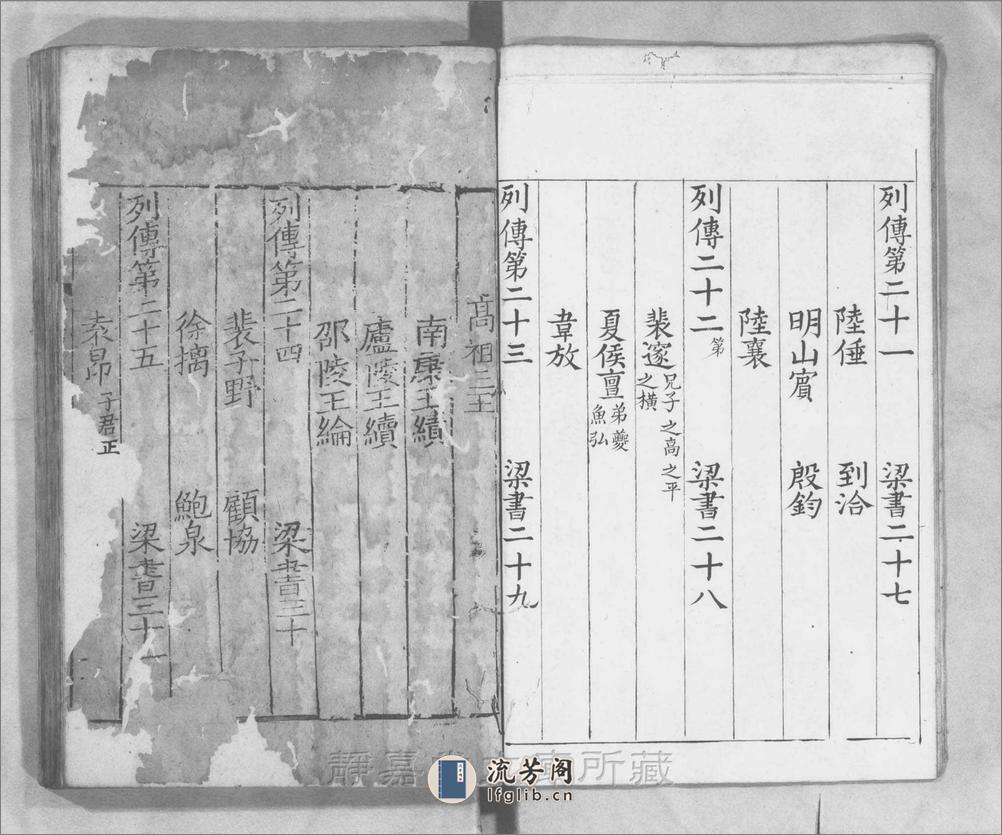 列傳第二十一　梁書二十七
陸倕　到洽
明山賓　殷鈞
陸襄
列傳二十二　梁書二十八
第
裴邃　兄子之高之平之橫
夏侯亶　弟夔　魚弘
韋放
列傳第二十三　梁書二十九
高祖三王
南康王績
廬陵王續
邵陵王綸
列傳第二十四　梁書三十
裴子野　顧協
徐摛　鮑泉
列傳第二十五　梁書三十一
袁昂　子君正
靜嘉堂文庫所藏
流芳阁
lfglib.cn